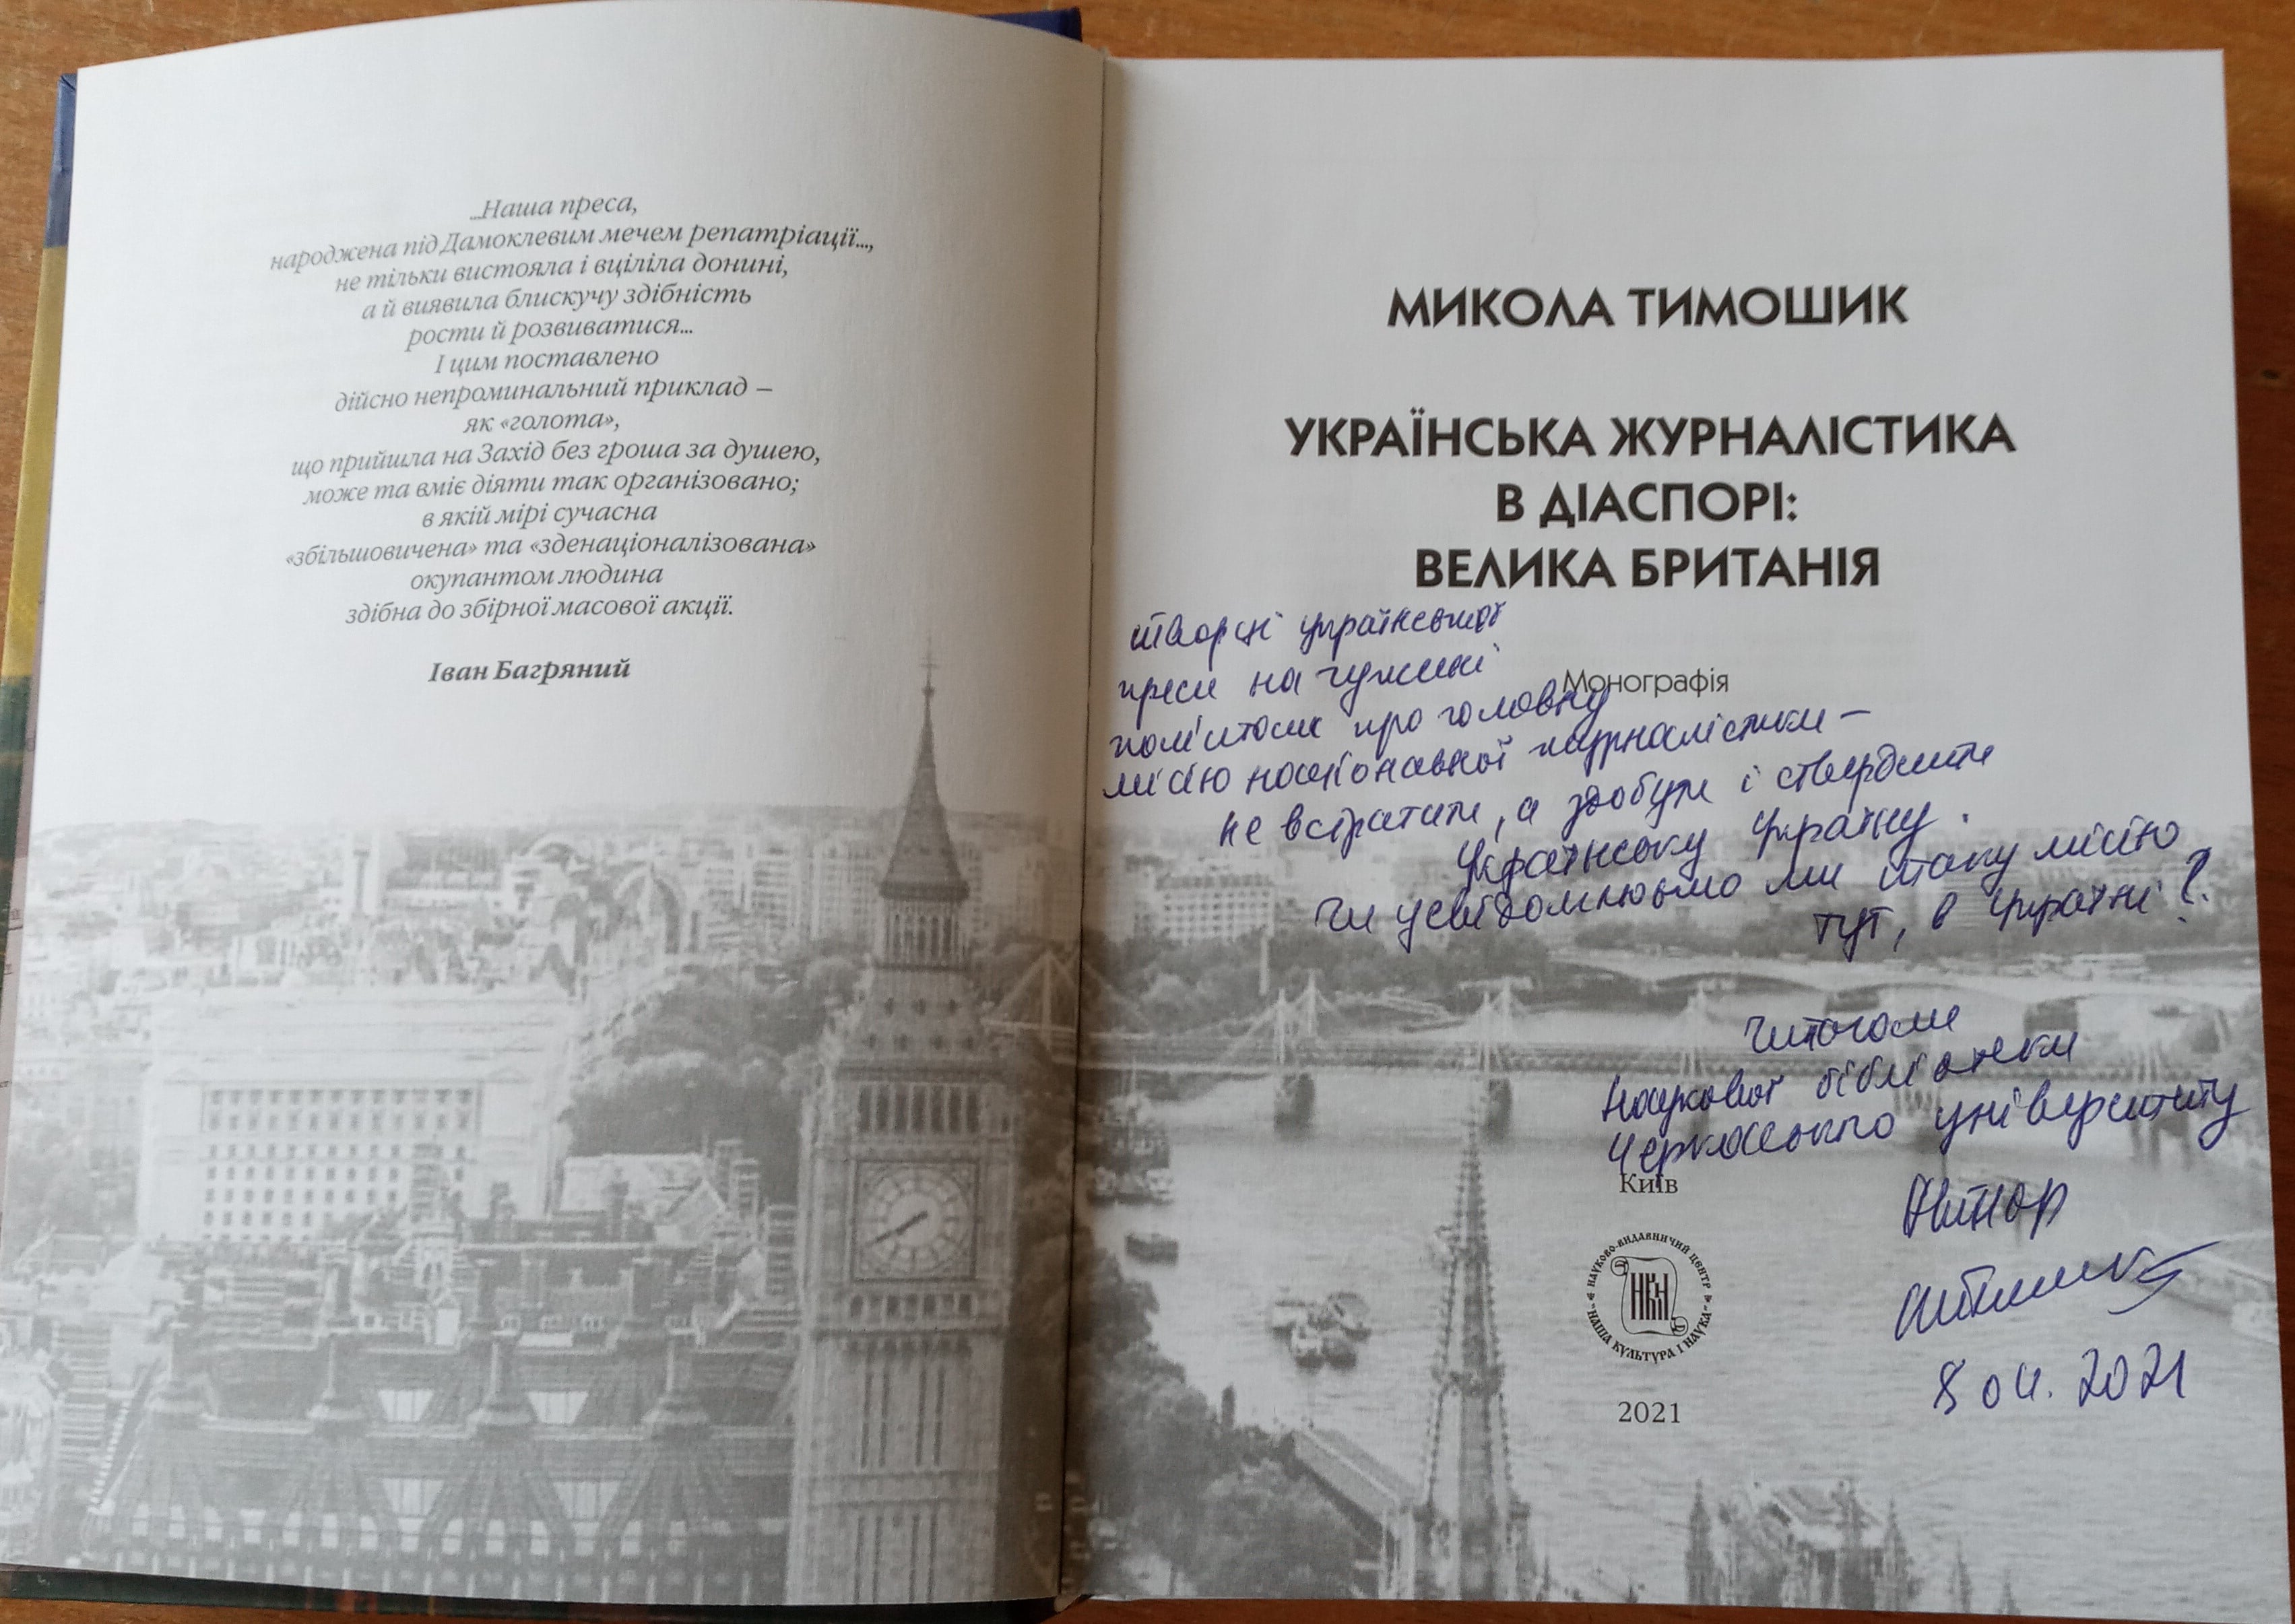 ...Наша преса,
народжена під Дамоклевим мечем репатріації...,
не тільки вистояла і вціліла донині,
а й виявила блискучу здібність
рости й розвиватися...
І цим поставлено
дійсно непроминальний приклад –
як «голота»,
що прийшла на Захід без гроша за душею,
може та вміє діяти так організовано;
в якій мірі сучасна
«збільшовичена» та «зденаціоналізована»
окупантом людина
здібна до збірної масової акції.
Іван Багряний
МИКОЛА ТИМОШИК
УКРАЇНСЬКА ЖУРНАЛІСТИКА
В ДІАСПОРІ:
ВЕЛИКА БРИТАНІЯ
Монографія
творці української
преси на чужині
пам'ятали про головну
місію національної журналістики –
не втратити, а здобути і ствердити
Українську Україну.
Чи усвідомлюємо ми таку місію
тут, в Україні?
Читачам
Наукової бібліотеки
Черкаського університету
Автор
8 04. 2021
Київ
НАУКОВО-ВИДАВНИЧИЙ ЦЕНТР
«НАША КУЛЬТУРА І НАУКА»
2021